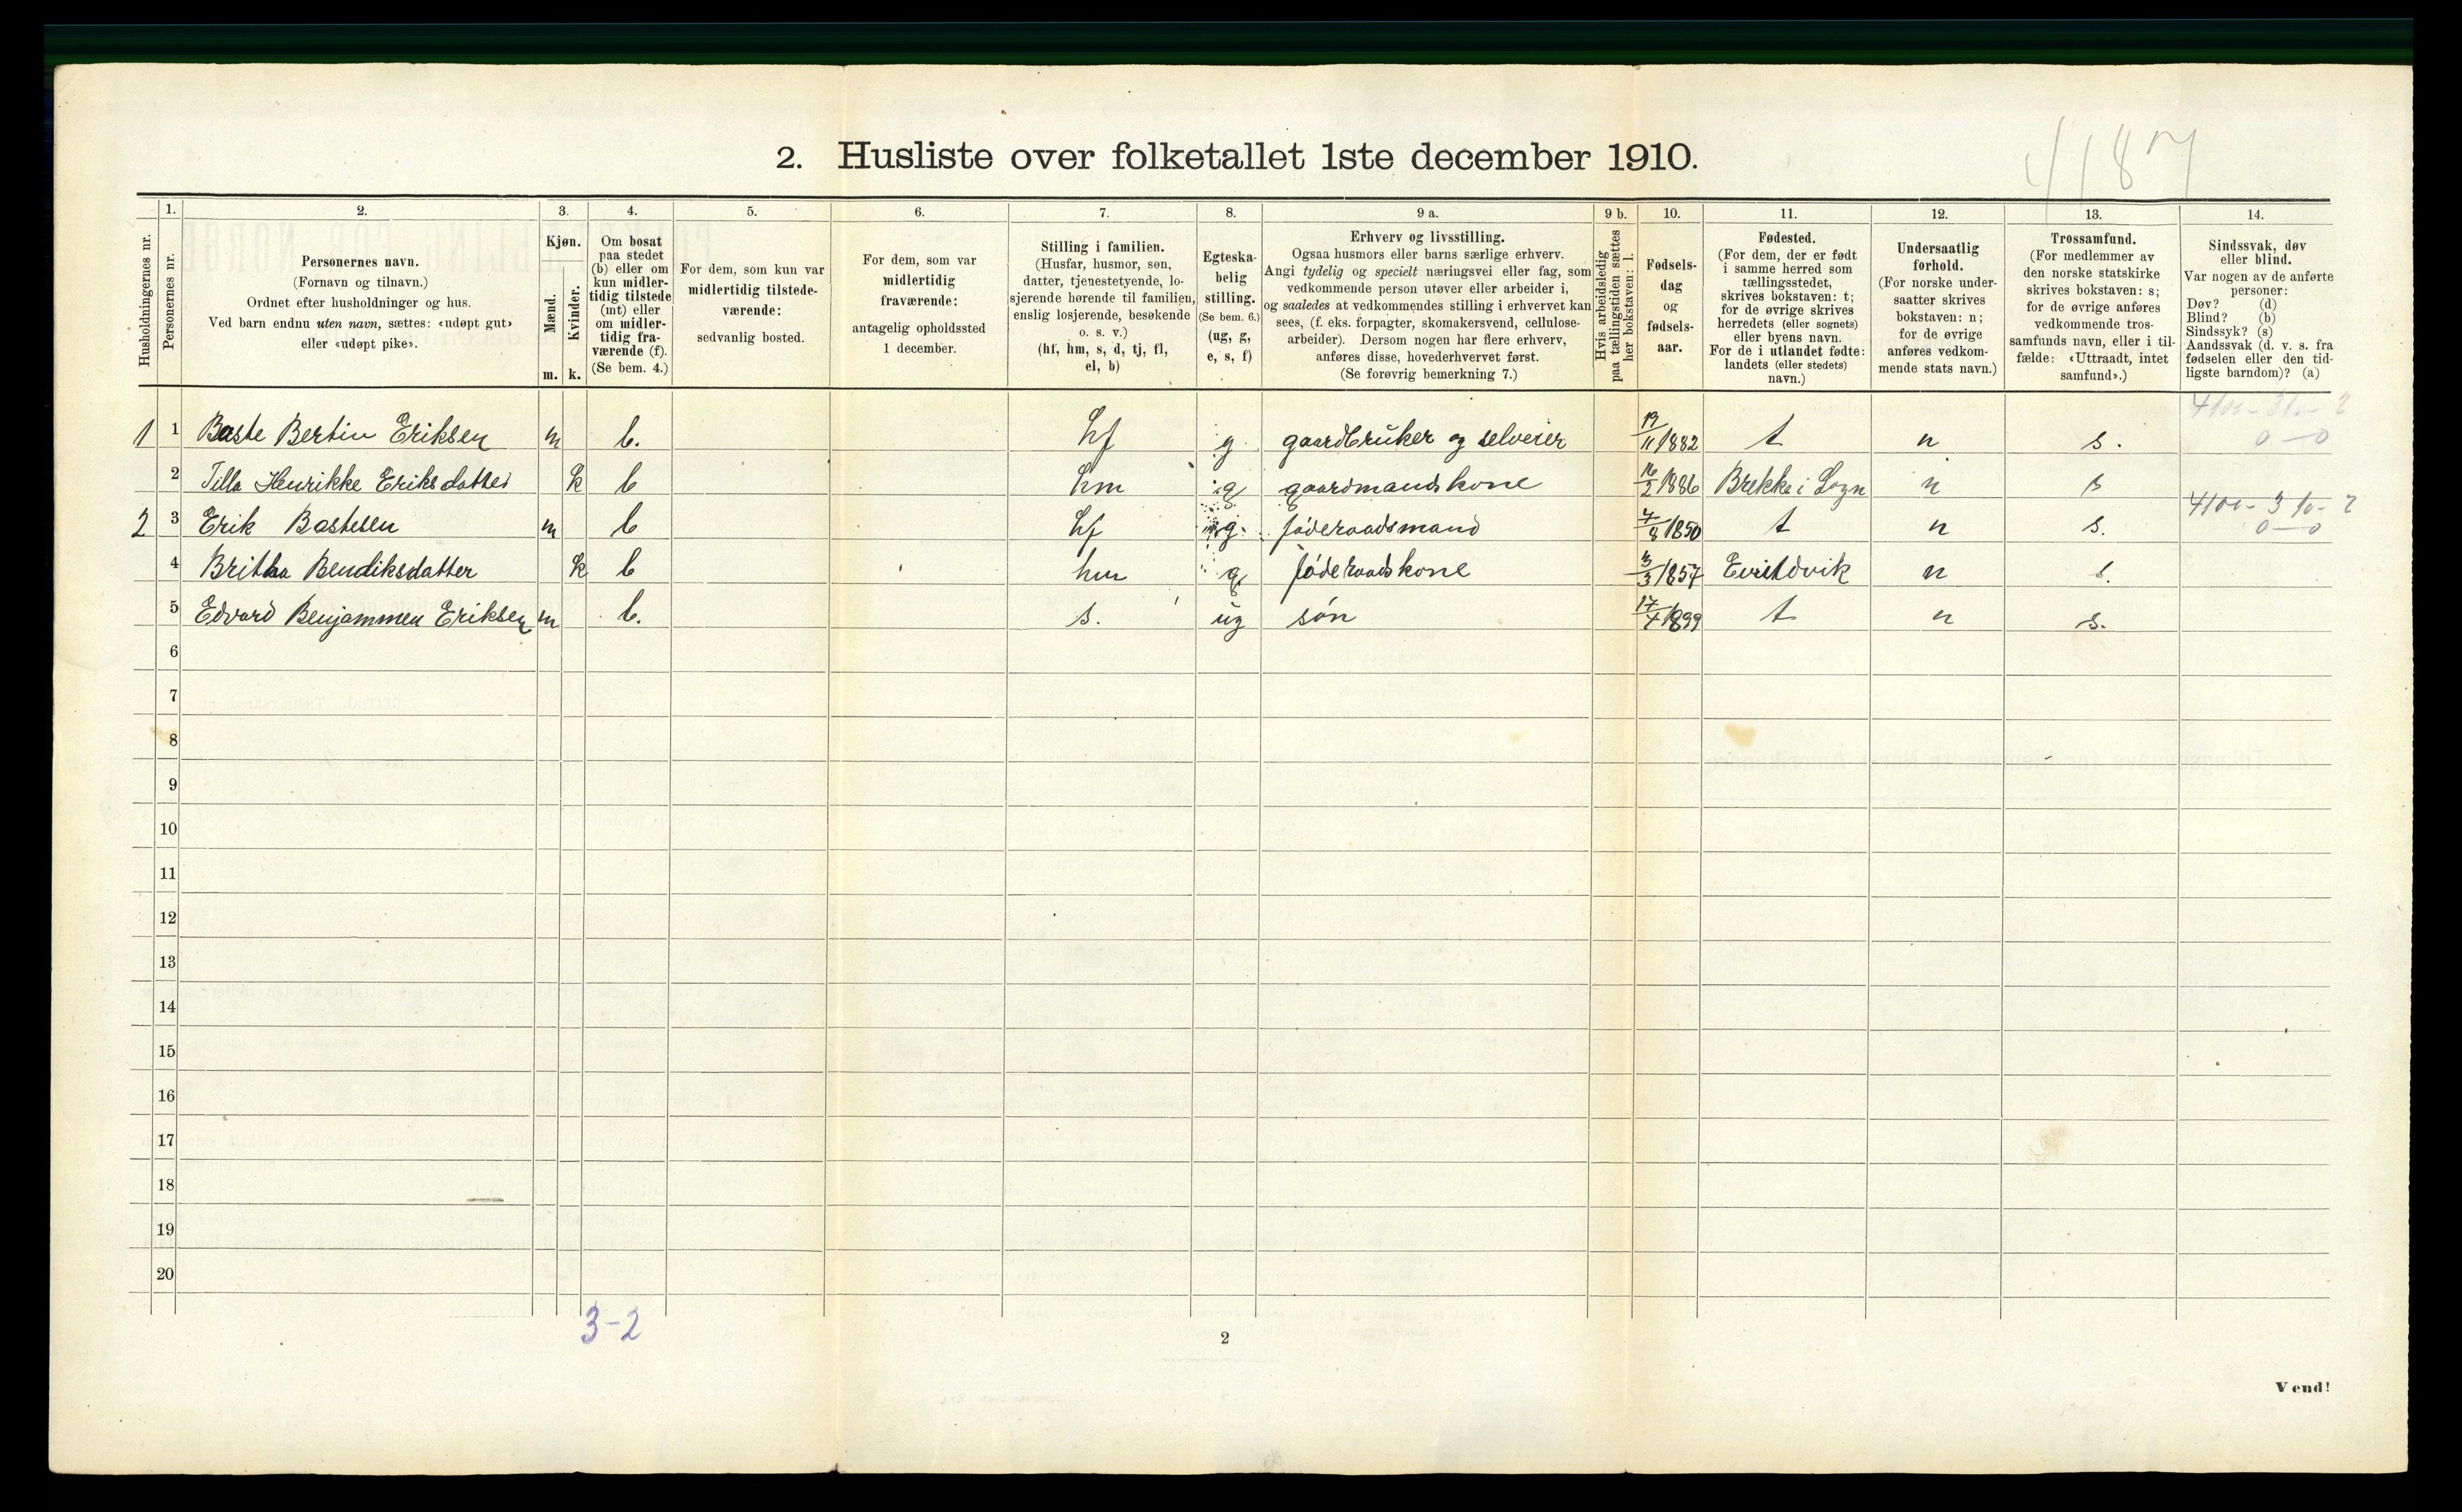 2. Husliste over folketallet 1ste december 1910.
1. 2. 3. 4. 5. 6. 7. 8. 9 a. 9 b. 10. 11. 12. 13. 14.
Husholdningernes nr.
Personernes nr.
Personernes navn.
(Fornavn og tilnavn.)
Ordnet efter husholdninger og hus.
Ved barn endnu uten navn, sættes: «udøpt gut»
eller «udøpt pike».
Kjøn.
Mænd.
Kvinder.
m. k.
Om bosat
paa stedet
(b) eller om
kun midler-
tidig tilstede
(mt) eller
om midler-
tidig fra-
værende (f).
(Se bem. 4.)
For dem, som kun var
midlertidig tilstede-
værende:
sedvanlig bosted.
For dem, som var
midlertidig
fraværende:
antagelig opholdssted
1 december.
Stilling i familien.
(Husfar, husmor, søn,
datter, tjenestetyende, lo-
sjerende hørende til familien,
enslig losjerende, besøkende
o. s. v.)
(hf, hm, s, d, tj, fl,
el, b)
Egteska-
belig
stilling.
(Se bem. 6.)
(ug, g,
e, s, f)
Erhverv og livsstilling.
Ogsaa husmors eller barns særlige erhverv.
Angi tydelig og specielt næringsvei eller fag, som
vedkommende person utøver eller arbeider i,
og saaledes at vedkommendes stilling i erhvervet kan
sees, (f. eks. forpagter, skomakersvend, cellulose-
arbeider). Dersom nogen har flere erhverv,
anføres disse, hovederhvervet først.
(Se forøvrig bemerkning 7.)
Hvis arbeidsledig
paa tællingstiden sættes
her bokstaven: l.
Fødsels-
dag
og
fødsels-
aar.
Fødested.
(For dem, der er født
i samme herred som
tællingsstedet,
skrives bokstaven: t;
for de øvrige skrives
herredets (eller sognets)
eller byens navn.
For de i utlandet fødte:
landets (eller stedets)
navn.)
Undersaatlig
forhold.
(For norske under-
saatter skrives
bokstaven: n;
for de øvrige
anføres vedkom-
mende stats navn.)
Trossamfund.
(For medlemmer av
den norske statskirke
skrives bokstaven: s;
for de øvrige anføres
vedkommende tros-
samfunds navn, eller i til-
fælde: «Uttraadt, intet
samfund».)
Sindssvak, døv
eller blind.
Var nogen av de anførte
personer:
Døv? (d)
Blind? (b)
Sindssyk? (s)
Aandssvak (d. v. s. fra
fødselen eller den tid-
ligste barndom)? (a)
1 1 Baste Bertin Eriksen m b. hf g gaardbruker og selveier 19/11 1882 t n s. 0—0
2 Tilla Henrikke Eriksdatter k b hm g gaardmandskone 16/2 1886 Brekke i Sogn n s
2 3 Erik Bastesen m b hf g. föderaadsmand 7/8 1850 t n s. 0—0
4 Britha Bendiksdatter k b hm g föderaadskone 3/3 1857 Evindvik n s.
5 Edvard Benjammen Eriksen m b. s. ug sön 17/4 1899 t n s.
6
7
8
9
10
11
12
13
14
15
16
17
18
19
20
3-2
2
Vend!